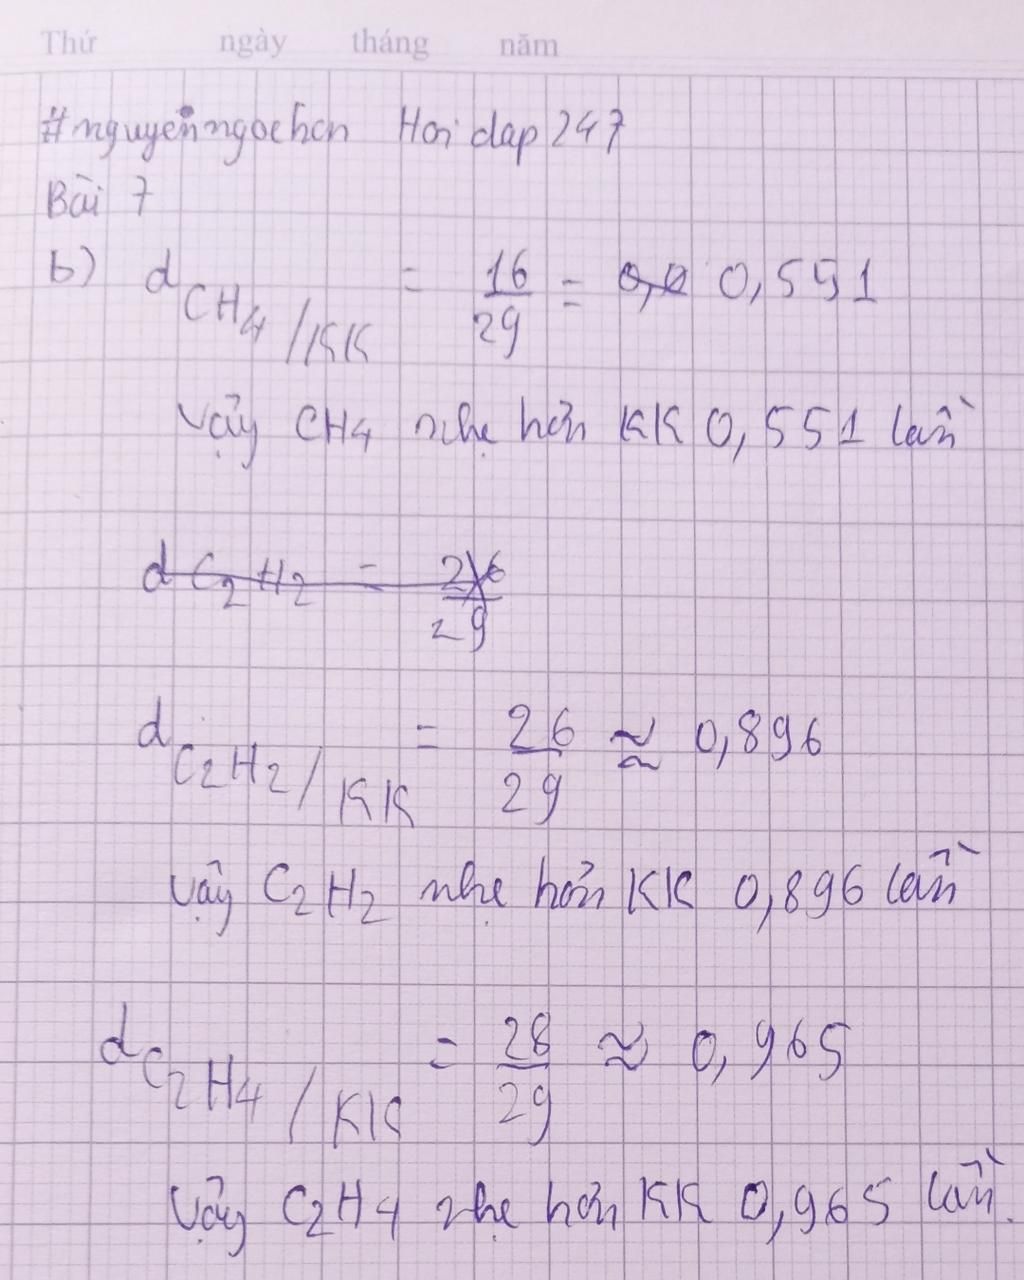 Thứ ngày tháng năm
#nguyenngochcn Hoi dap 247
Bài 7
b) d CH4/KK = 16/29 = 0,551
Vậy CH4 nhẹ hơn KK 0,551 lần
d C2H2 = 26/29
d C2H2/KK = 26/29 ≈ 0,896
Vậy C2H2 nhẹ hơn KK 0,896 lần
d C2H4/KK = 28/29 ≈ 0,965
Vậy C2H4 nhẹ hơn KK 0,965 lần.